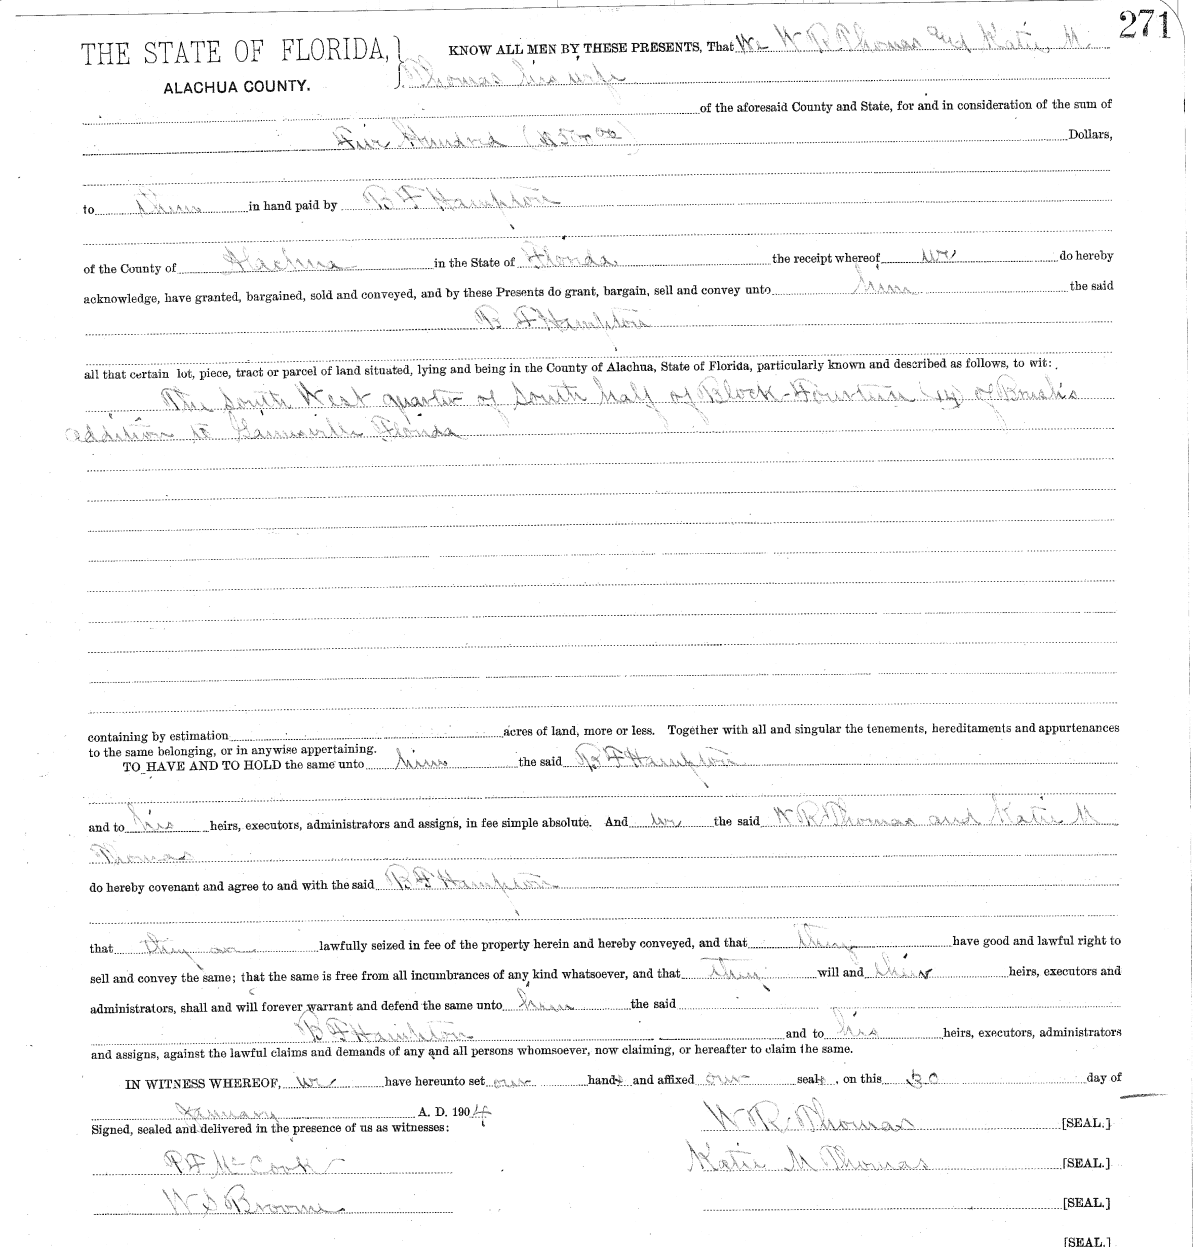 271
THE STATE OF FLORIDA, KNOW ALL MEN BY THESE PRESENTS, That We W R Thomas and Katie M.
ALACHUA COUNTY. Thomas his wife
of the aforesaid County and State, for and in consideration of the sum of
Five Hundred ($500.00) Dollars,
to them in hand paid by B F Hampton
of the County of Alachua in the State of Florida the receipt whereof we do hereby
acknowledge, have granted, bargained, sold and conveyed, and by these Presents do grant, bargain, sell and convey unto him the said
B F Hampton
all that certain lot, piece, tract or parcel of land situated, lying and being in the County of Alachua, State of Florida, particularly known and described as follows, to wit:
The South West quarter of South half of Block Fourteen (14) of Brush's
addition to Gainesville Florida
containing by estimation acres of land, more or less. Together with all and singular the tenements, hereditaments and appurtenances
to the same belonging, or in anywise appertaining.
TO HAVE AND TO HOLD the same unto him the said B F Hampton
and to his heirs, executors, administrators and assigns, in fee simple absolute. And we the said W R Thomas and Katie M
Thomas
do hereby covenant and agree to and with the said B F Hampton
that they are lawfully seized in fee of the property herein and hereby conveyed, and that they have good and lawful right to
sell and convey the same; that the same is free from all incumbrances of any kind whatsoever, and that they will and their heirs, executors and
administrators, shall and will forever warrant and defend the same unto him the said
B F Hampton and to his heirs, executors, administrators
and assigns, against the lawful claims and demands of any and all persons whomsoever, now claiming, or hereafter to claim the same.
IN WITNESS WHEREOF, we have hereunto set our hands and affixed our seals, on this 30 day of
January A. D. 1904
Signed, sealed and delivered in the presence of us as witnesses: W R Thomas [SEAL.]
P F McCook Katie M Thomas [SEAL.]
W S Broome [SEAL.]
[SEAL.]